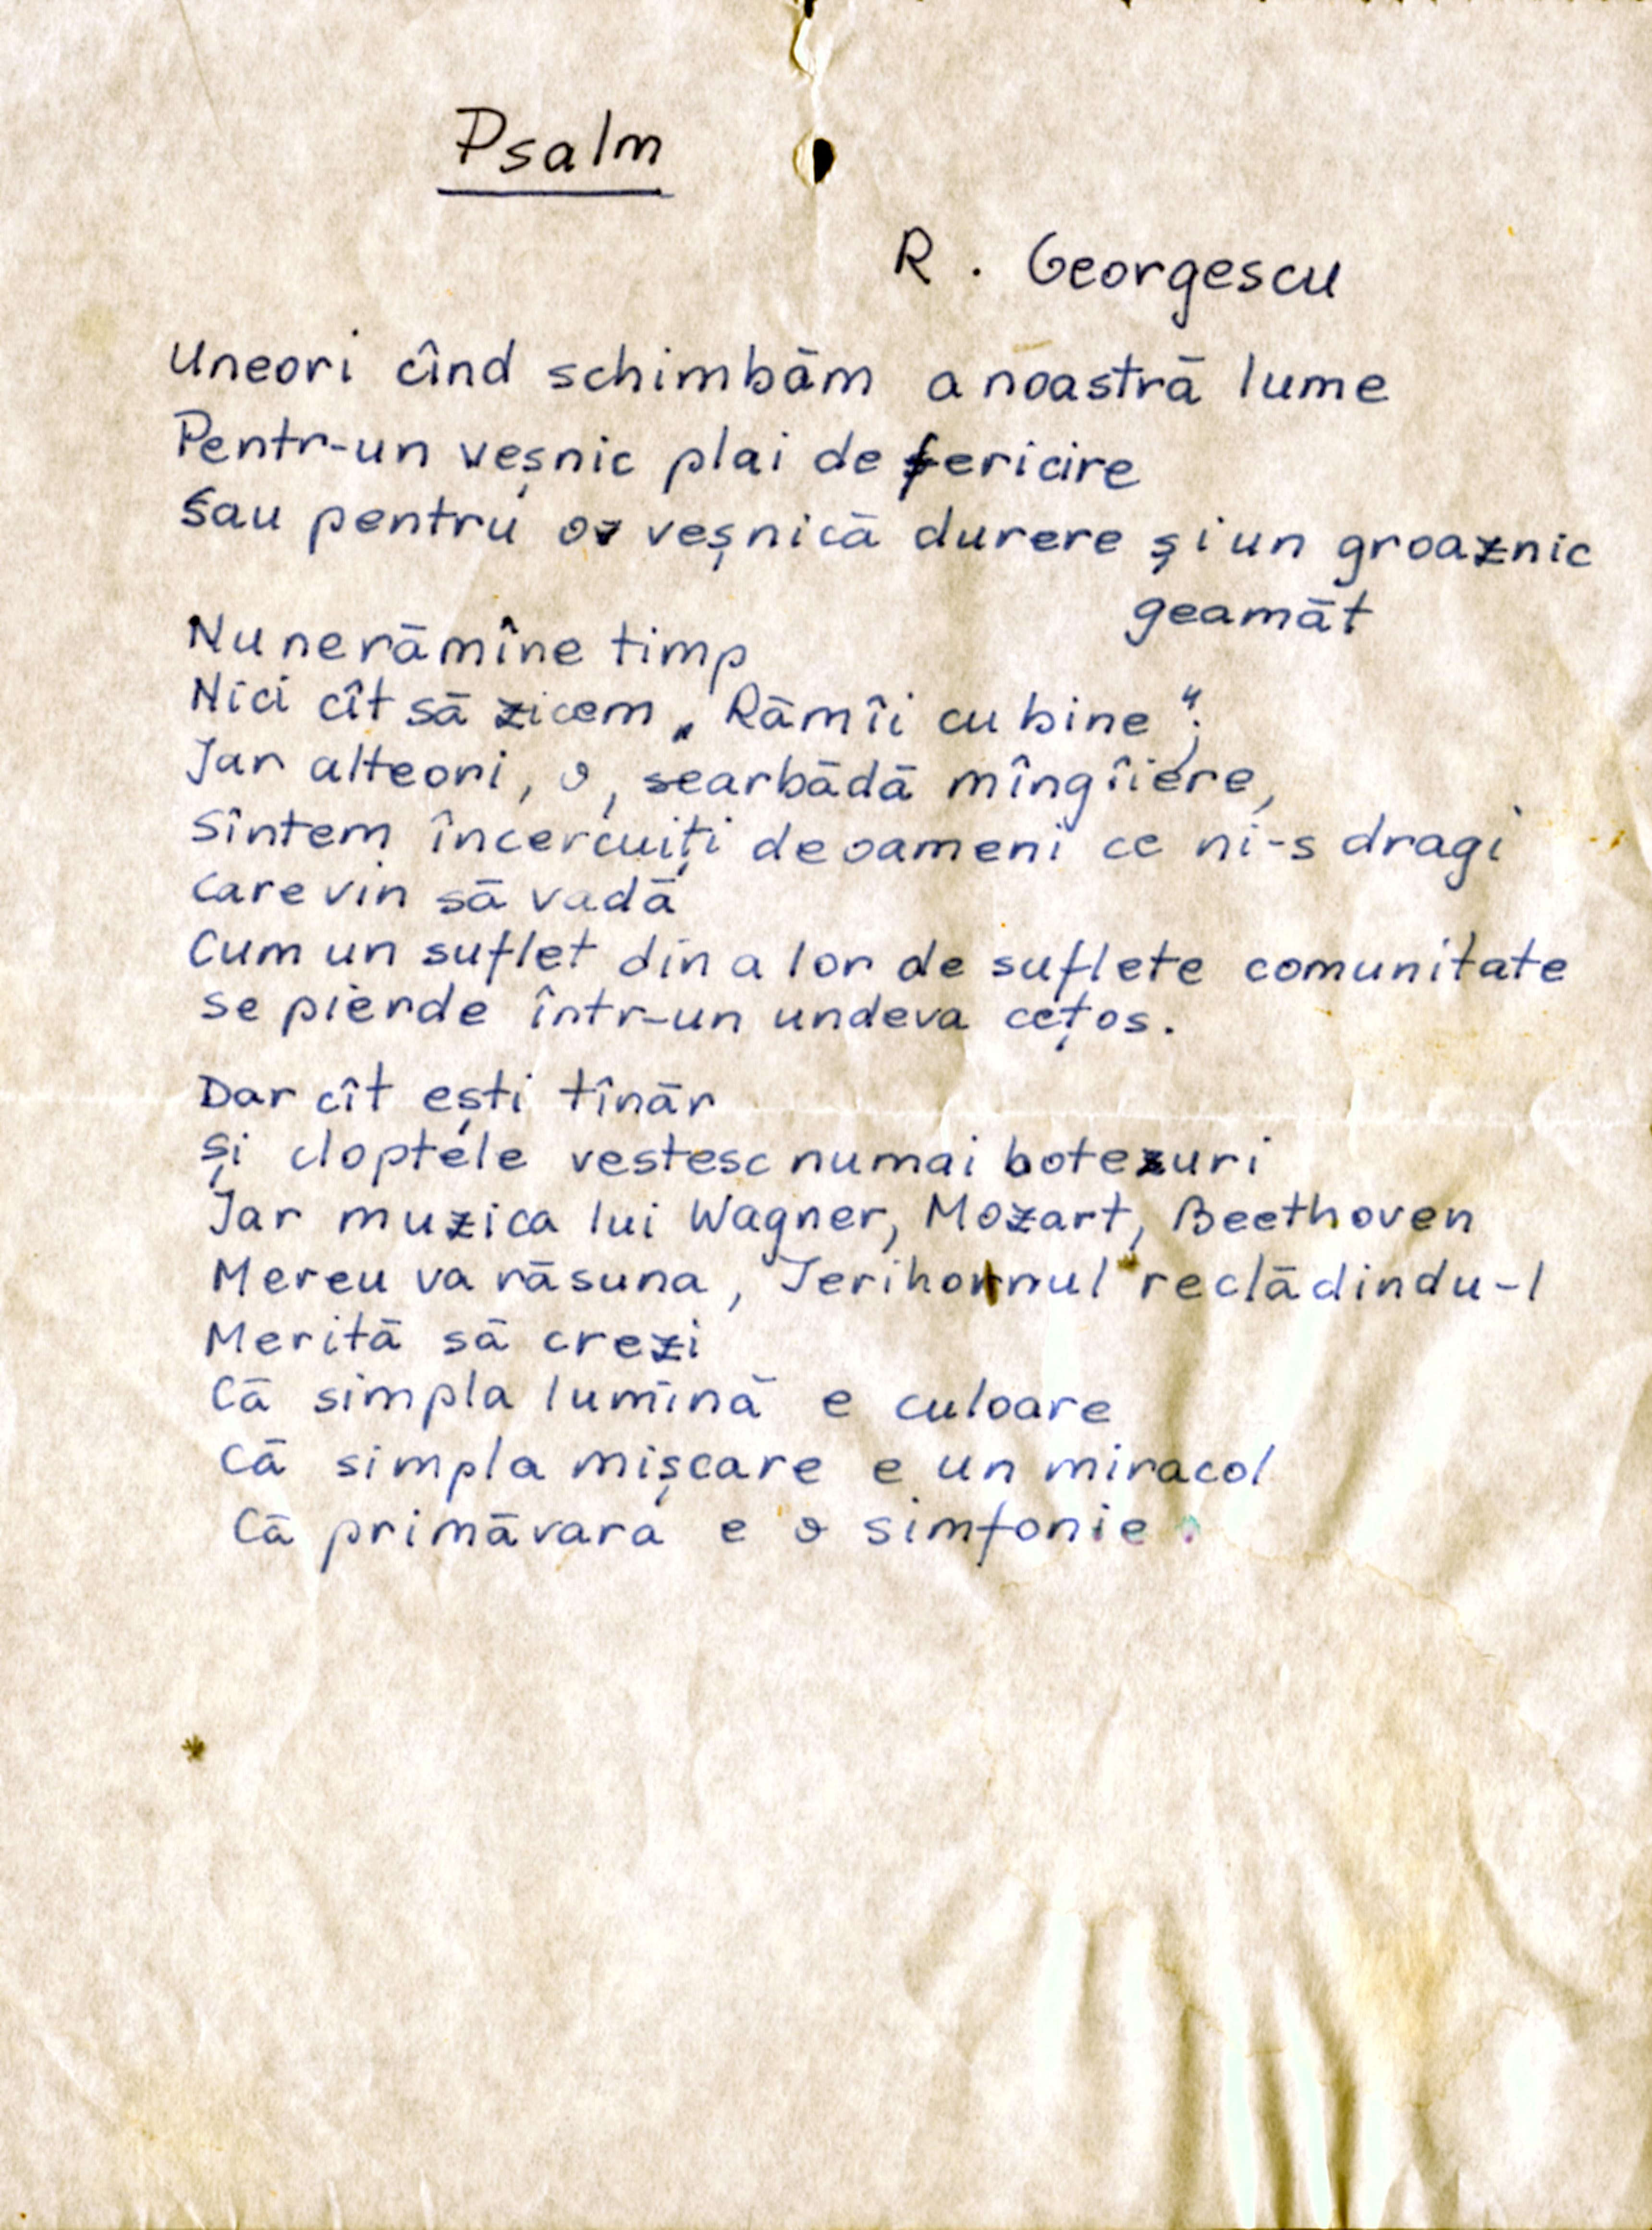 Psalm
R. Georgescu
Uneori cînd schimbăm a noastră lume
Pentr-un veșnic plai de fericire
Sau pentru o veșnică durere și un groaznic
geamăt
Nu ne rămîne timp
Nici cît să zicem „Rămîi cu bine";
Iar alteori, o, searbădă mîngîiere,
Sîntem încercuiți de oameni ce ni-s dragi
Care vin să vadă
Cum un suflet din a lor de suflete comunitate
Se pierde într-un undeva cețos.
Dar cît ești tînăr
Și cloptele vestesc numai botezuri
Iar muzica lui Wagner, Mozart, Beethoven
Mereu va răsuna, Ierihonnul reclădindu-l
Merită să crezi
Că simpla lumină e culoare
Că simpla mișcare e un miracol
Că primăvara e o simfonie.